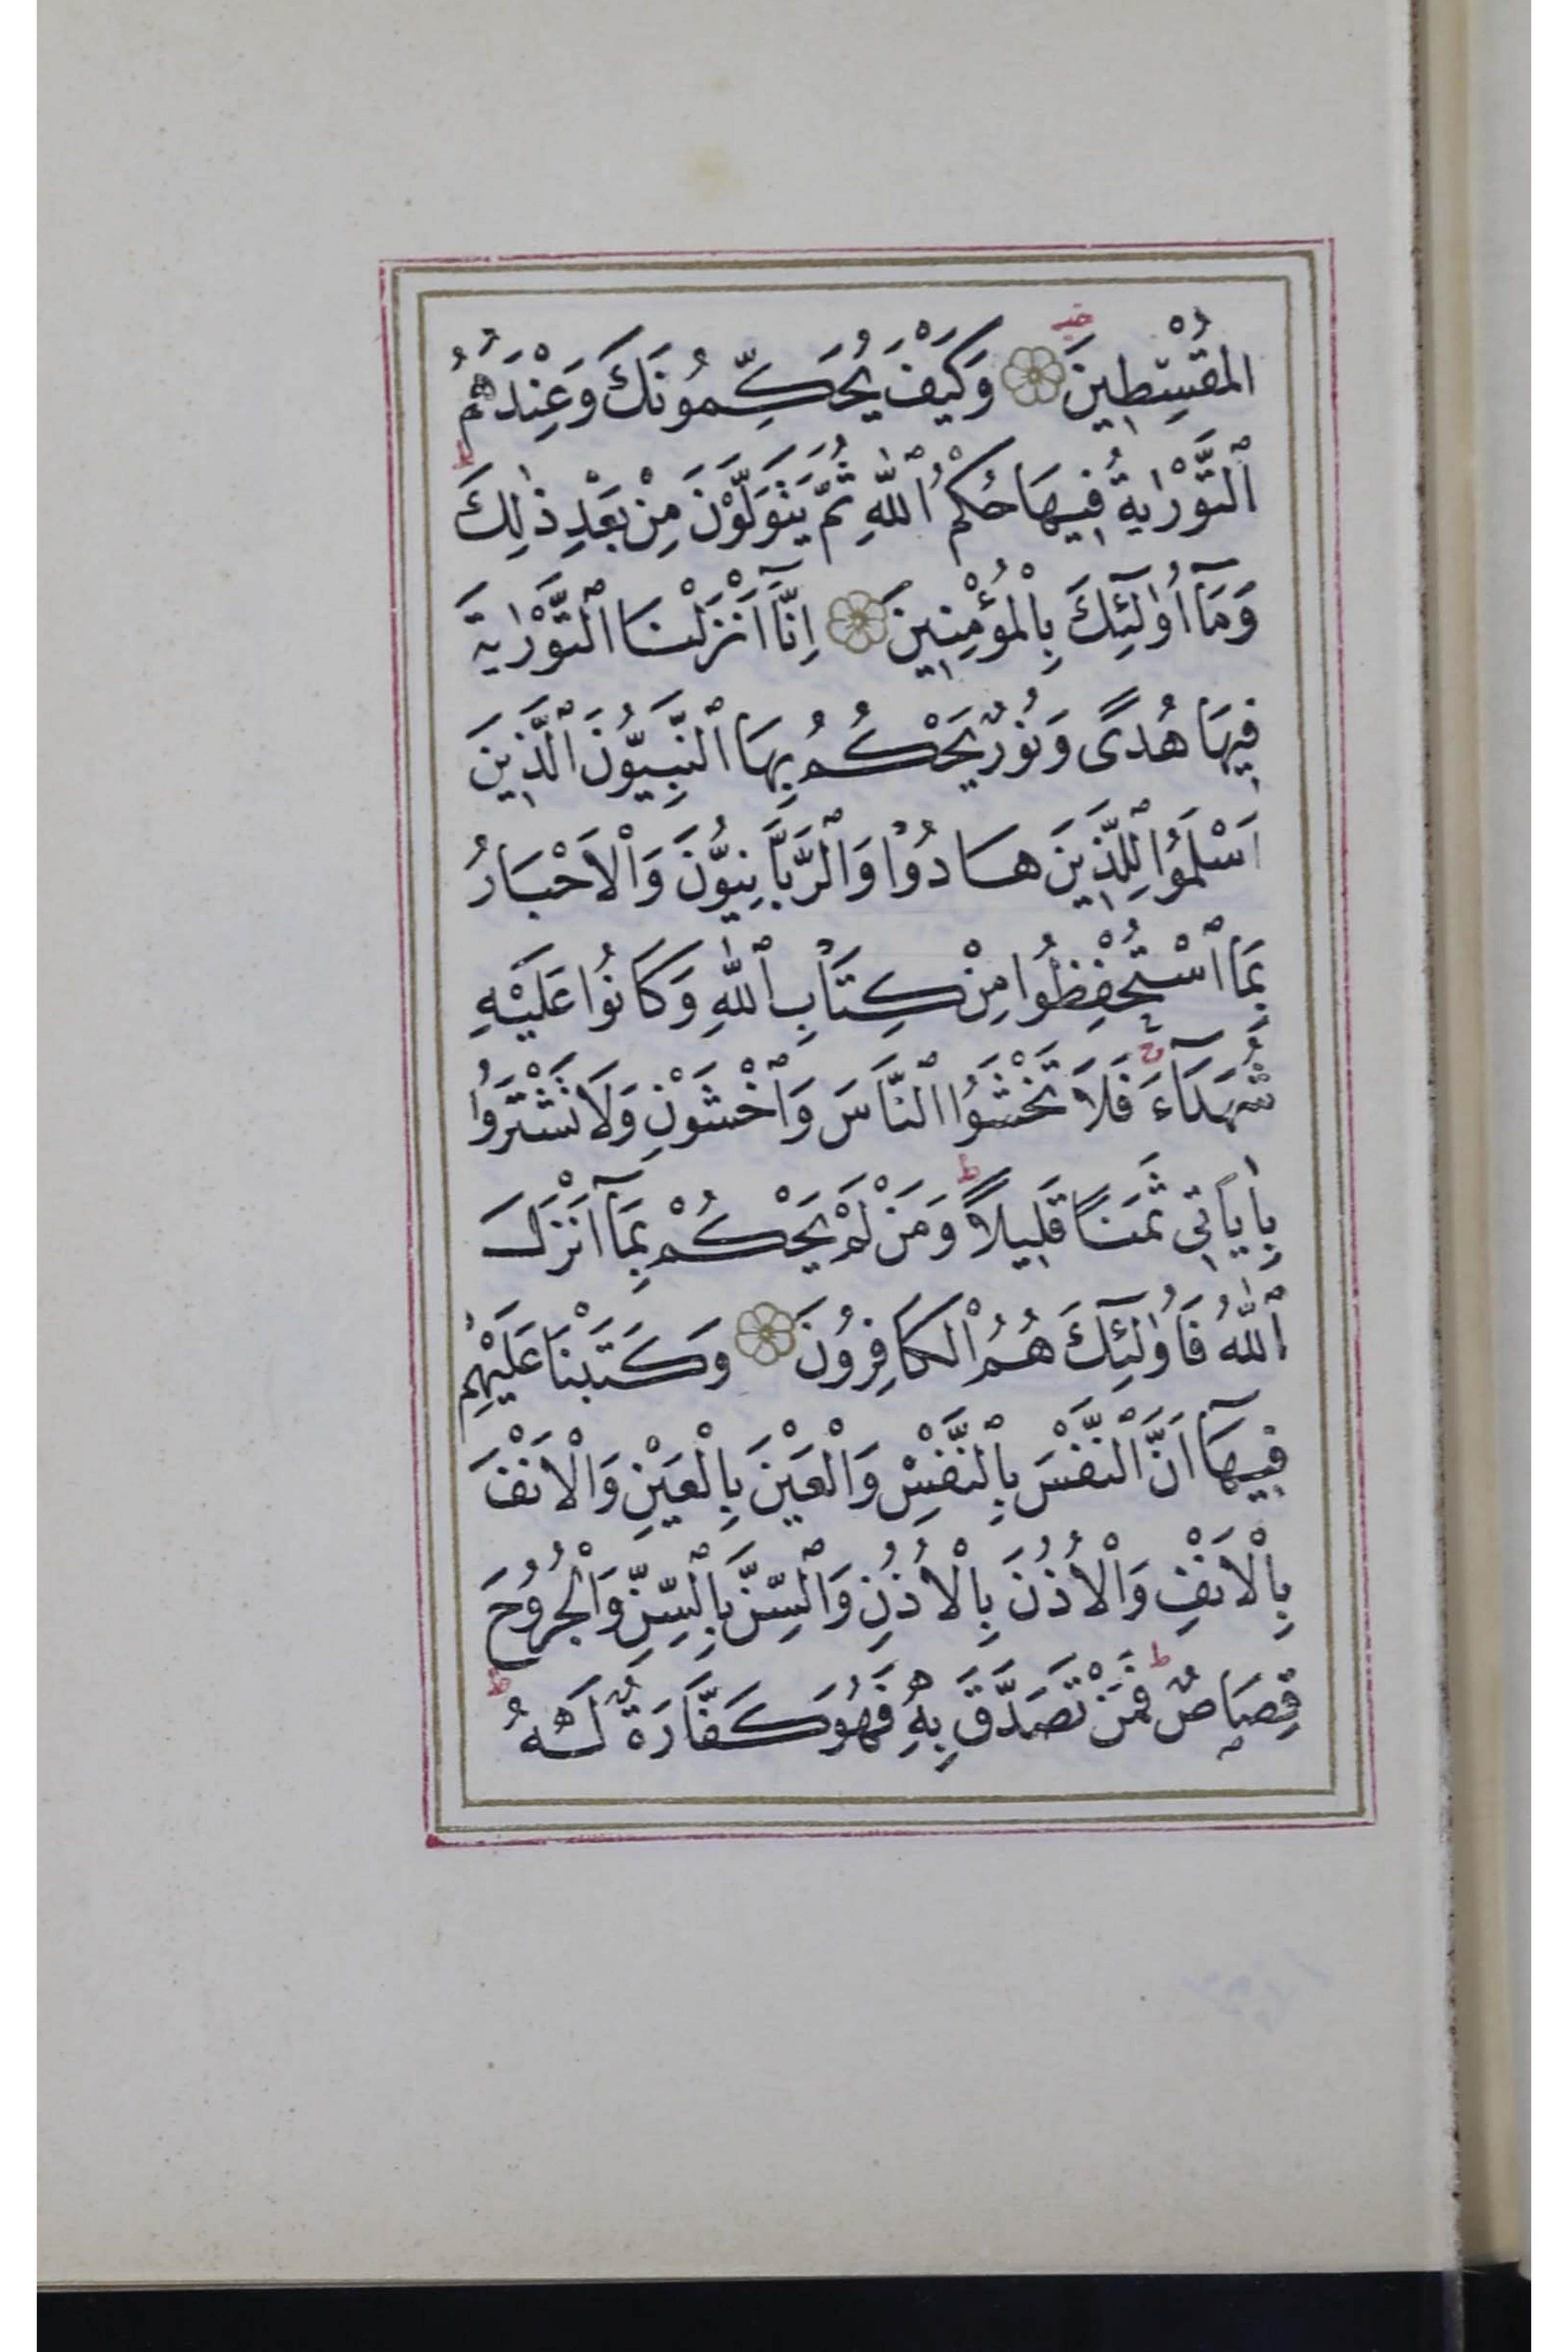 الْمُقْسِطِينَ وَكَيْفَ يُحَكِّمُونَكَ وَعِنْدَهُمُ
ٱلتَّوْرٰيةُ فِيهَا حُكْمُ ٱللّٰهِ ثُمَّ يَتَوَلَّوْنَ مِنْ بَعْدِ ذٰلِكَ ط
وَمَآ اُولٰٓئِكَ بِالْمُؤْمِنِينَ اِنَّآ اَنْزَلْنَا ٱلتَّوْرٰيةَ
فِيهَا هُدًى وَنُورٌ يَحْكُمُ بِهَا ٱلنَّبِيُّونَ ٱلَّذِينَ
اَسْلَمُوا لِلَّذِينَ هَادُوا وَٱلرَّبَّانِيُّونَ وَالْاَحْبَارُ
بِمَا ٱسْتُحْفِظُوا مِنْ كِتَابِ ٱللّٰهِ وَكَانُوا عَلَيْهِ
شُهَدَآءَ ج فَلَا تَخْشَوُا ٱلنَّاسَ وَٱخْشَوْنِ وَلَا تَشْتَرُوا
بِاٰيَاتِي ثَمَنًا قَلِيلًا ط وَمَنْ لَمْ يَحْكُمْ بِمَآ اَنْزَلَ
ٱللّٰهُ فَاُولٰٓئِكَ هُمُ الْكَافِرُونَ وَكَتَبْنَا عَلَيْهِمْ
فِيهَآ اَنَّ ٱلنَّفْسَ بِٱلنَّفْسِ وَالْعَيْنَ بِالْعَيْنِ وَالْاَنْفَ
بِالْاَنْفِ وَالْاُذُنَ بِالْاُذُنِ وَٱلسِّنَّ بِٱلسِّنِّ وَالْجُرُوحَ
قِصَاصٌ ط فَمَنْ تَصَدَّقَ بِهِ فَهُوَ كَفَّارَةٌ لَهُ ط